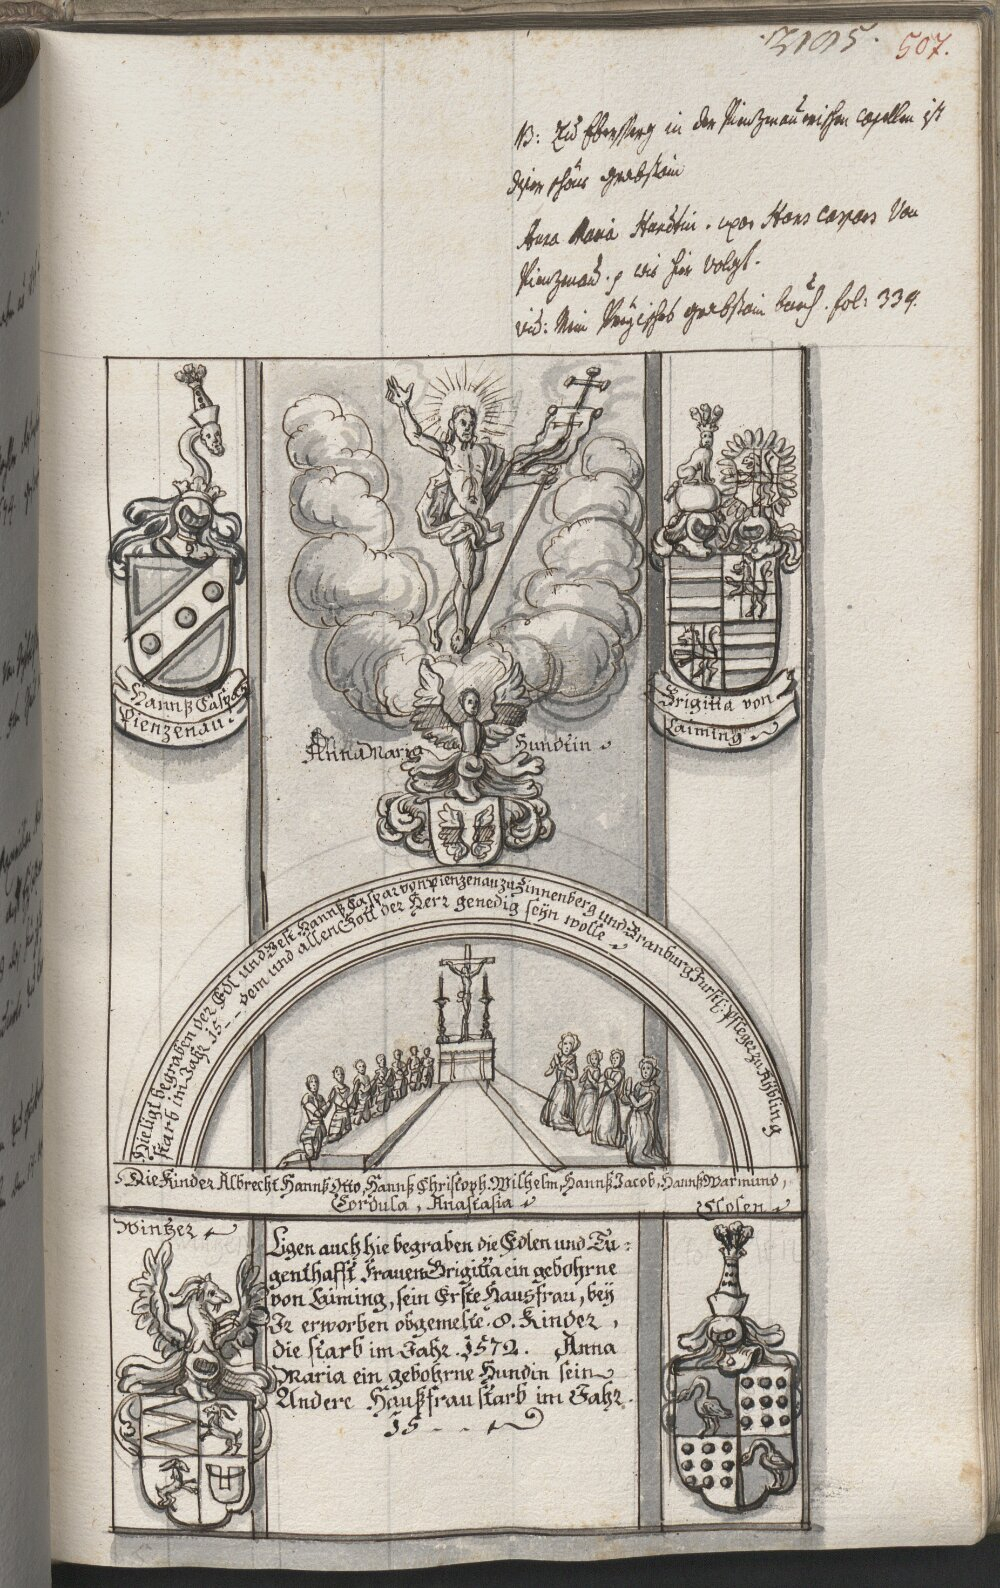 2105.
507.
NB: Zu Ebersperg in der Pienzenauerischen capellen ist
diser schöne grabstain
Anna Maria Hundtin. uxor Hans Caspars Von
Pienzenau. wie hie volgt.
vid: Mein grabstain buch. fol: 339.
Hannß Caspar
Pienzenau.
Brigitta von
Laiming
Anna Maria Hundtin
Hie ligt begraben der Edl und Vest Hannß Caspar von Pienzenau zu Zinnenberg und Branburg Fürstl: Pfleger zu Aÿbling
starb im Jahr 15-- dem und allen Gott der Herr genedig seÿn wolle
Die Kinder Albrecht, Hannß Otto, Hannß Christoph, Wilhelm, Hannß Jacob, Hannß Warmund,
Cordula, Anastasia
Wintzer
Closen
Ligen auch hie begraben die Edlen und Tu=
genthafft Frauen Brigitta ein gebohrne
von Laiming, sein Erste Hausfrau, beÿ
Ir erworben obgemelte 8. Kinder,
die starb im Jahr. 1572. Anna
Maria ein gebohrne Hundin sein
Andere Haußfrau starb im Jahr.
15 - - .